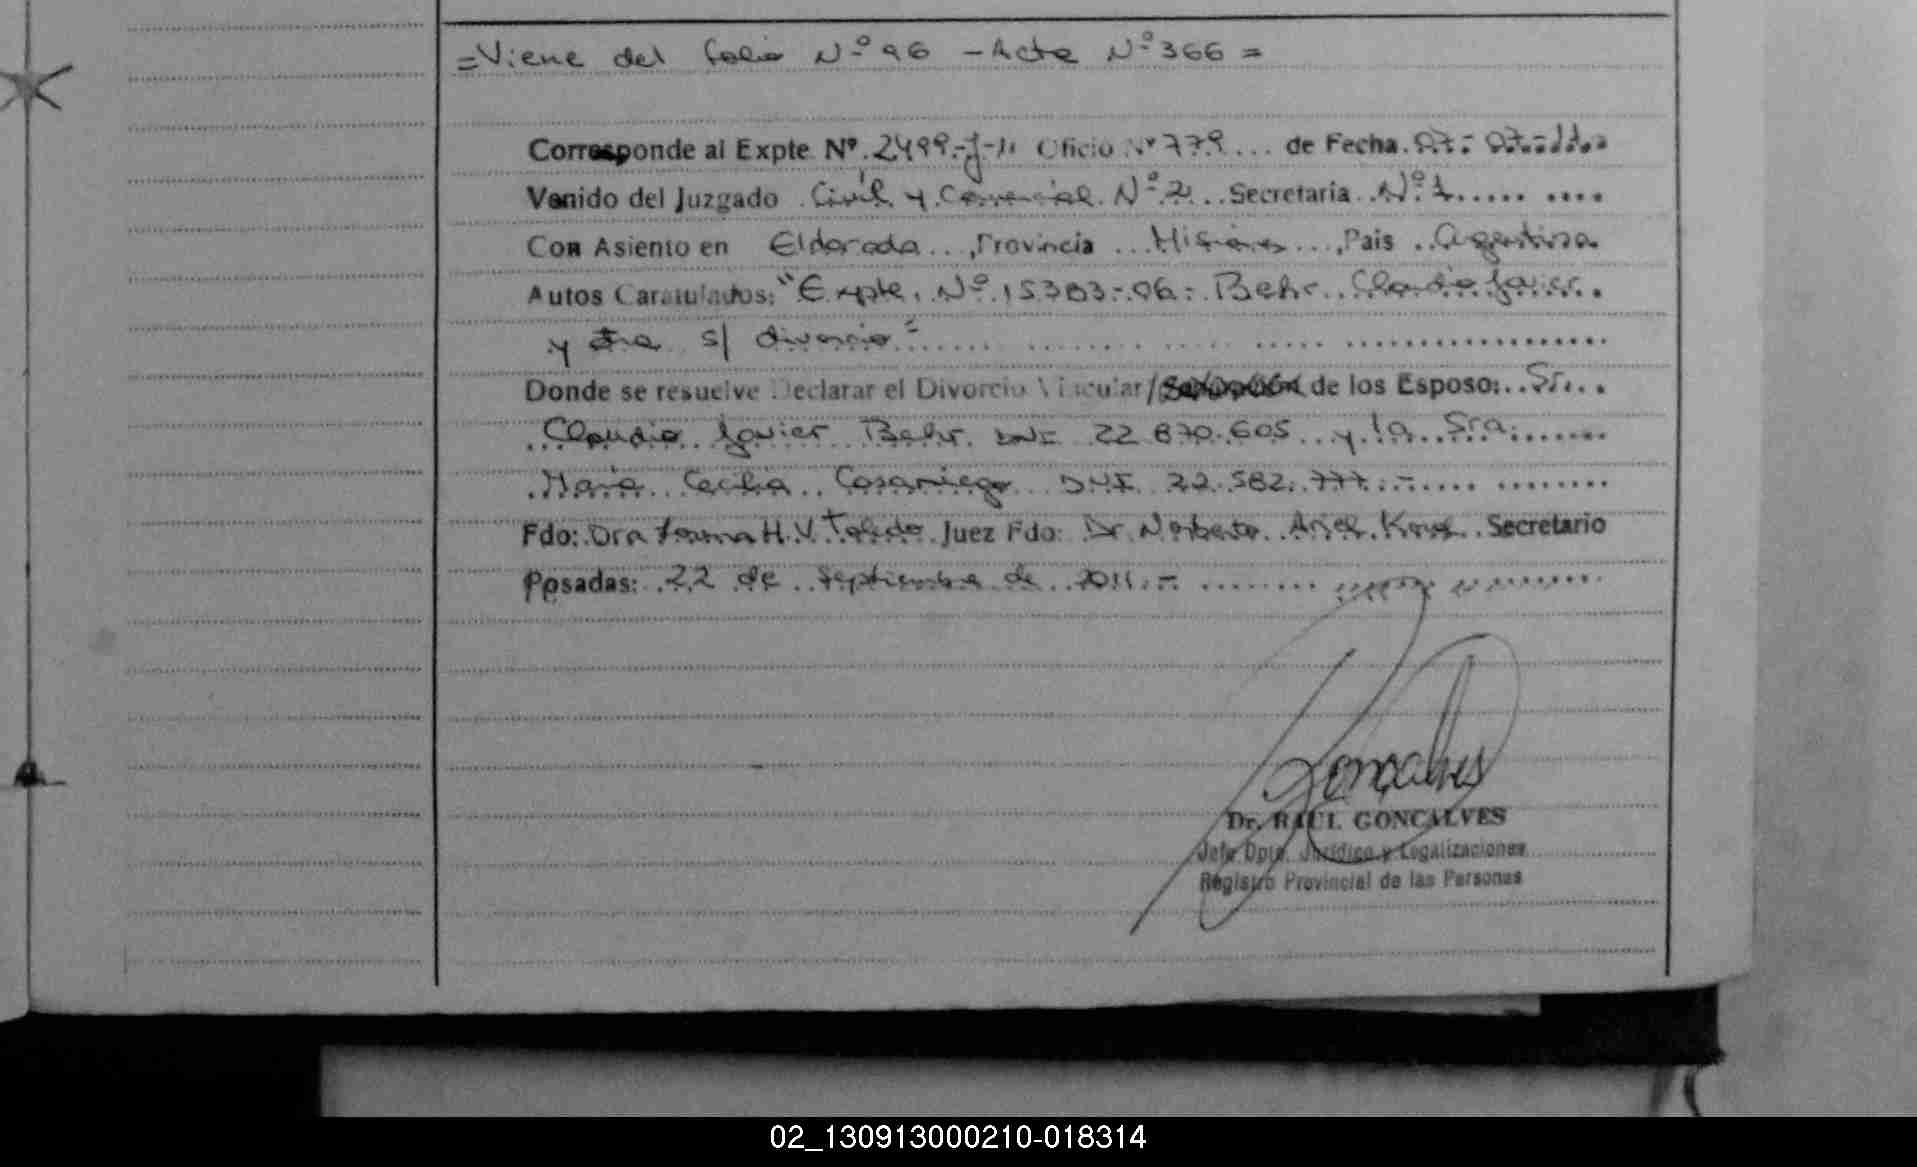 =Viene del folio Nº 96 - Acta Nº 366 =
Corresponde al Expte Nº 2499-J-11 Oficio Nº 779 de Fecha 07-07-11
Venido del Juzgado Civil y Comercial Nº 2 Secretaria Nº 1
Con Asiento en Eldorado, Provincia Misiones, Pais Argentina
Autos Caratulados: "Expte. Nº 15383-06- Behr Claudio Javier
y otra s/ divorcio"
Donde se resuelve Declarar el Divorcio Vincular/ de los Esposo: Sr.
Claudio Javier Behr DNI 22.870.605 y la Sra.
Maria Cecilia Casariego DNI 22.582.777.-
Fdo: Dra H.V. Toledo Juez Fdo: Dr. Norberto Ariel Secretario
Posadas: 22 de septiembre de 2011.-
Goncalves
Dr. RAUL GONCALVES
Jefe Dpto. Jurídico y Legalizaciones
Registro Provincial de las Personas
02_130913000210-018314